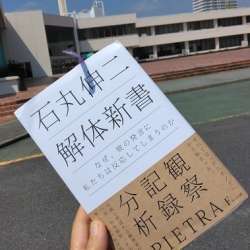 石丸伸二
解体新書
なぜ、彼の発言に
私たちは反応してしまうのか
観察
記録
分析
PIETRA